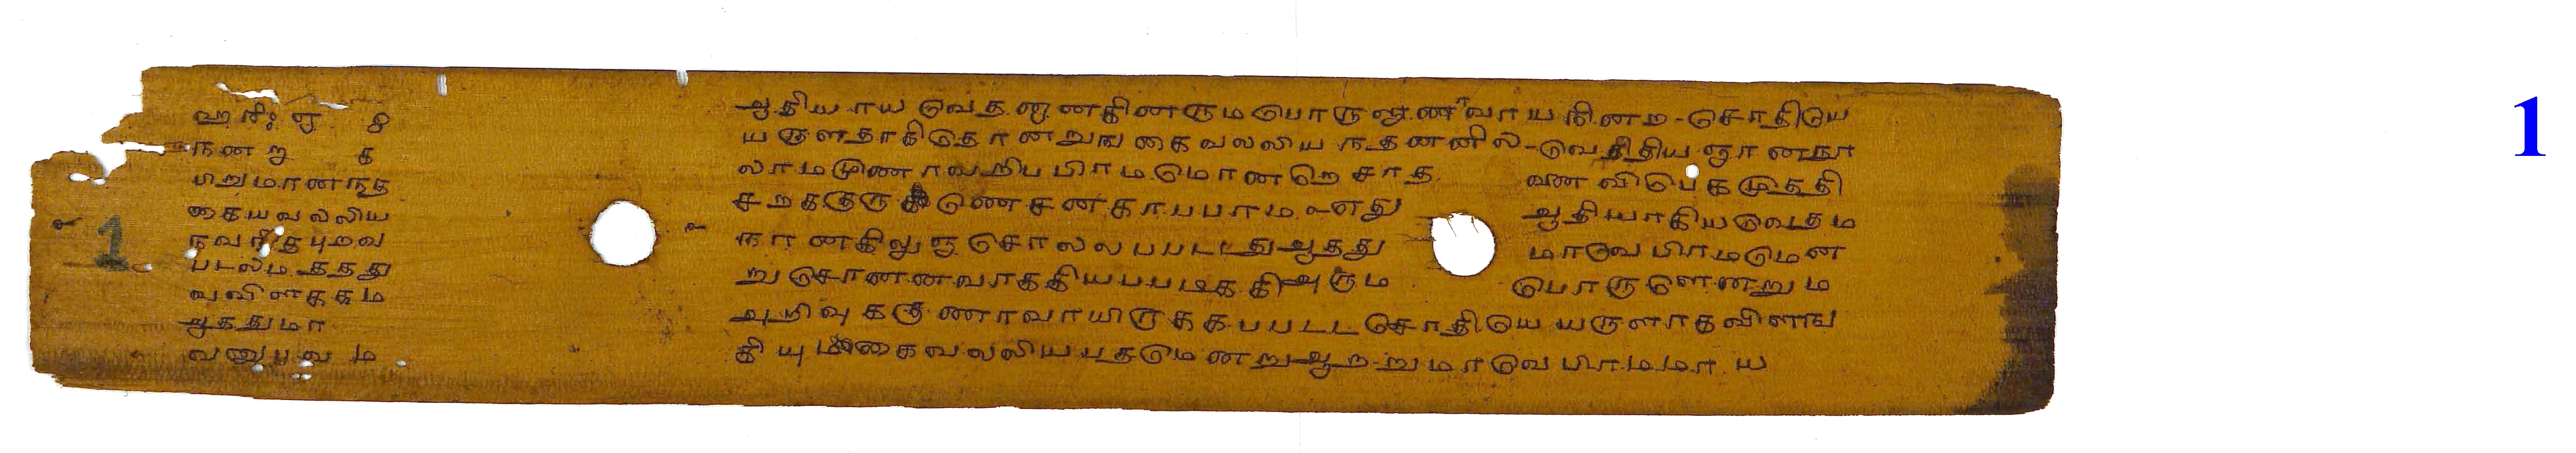 ஹரிஃ
நன று
பிறமானநத
கையவலலிய
நவநீதமுமவ
படலம தத்து
வவிளககம
ஆகதுமா
வனுபவ ம
1
ஆதியாய வேத னுனகினருமபொருளுணவாயநினம - சோதியே
யருளதாகிதேதானறுங கைவலலிய நதனனில் - வேதிதிய ஞானநூ
லாமமுணாவறிப பிரமமொனறெ சாத வண விபெகமுததி
சறகுரு சணகாபபாம - எது ஆதியாகியவேதம
நானகிலுஞ சொலலபபடடது ஆதது மாவே பிரமமென
று சொனனவாககியபபடிககி அரும பொருளெனறும
அறிவுககுணாவாயிருககபபடட சோதியெ யருளாகவிளங
கியும கைவலலியபதமெனறு ஆறறுமாவே பிரமமாய
1